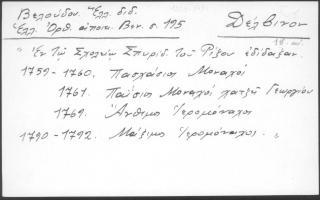 Βελούδου. Ἑλλ. διδ.
Ἑλλ. Ὀρθ. ἀποικ. Βεν. σ. 195
Δέλβινον
18. αἰ.
"Ἐν τῷ Σχολείῳ Σπυρίδ. τοῦ Ρίζου ἐδίδαξαν.
1759-1760. Πασχάσιος Μοναχός
1761. Παΐσιος Μοναχός χατζῆ Γεωργίου
1769. Ἄνθιμος Ἱερομόναχος
1790-1792. Μάξιμος Ἱερομόναχος. "